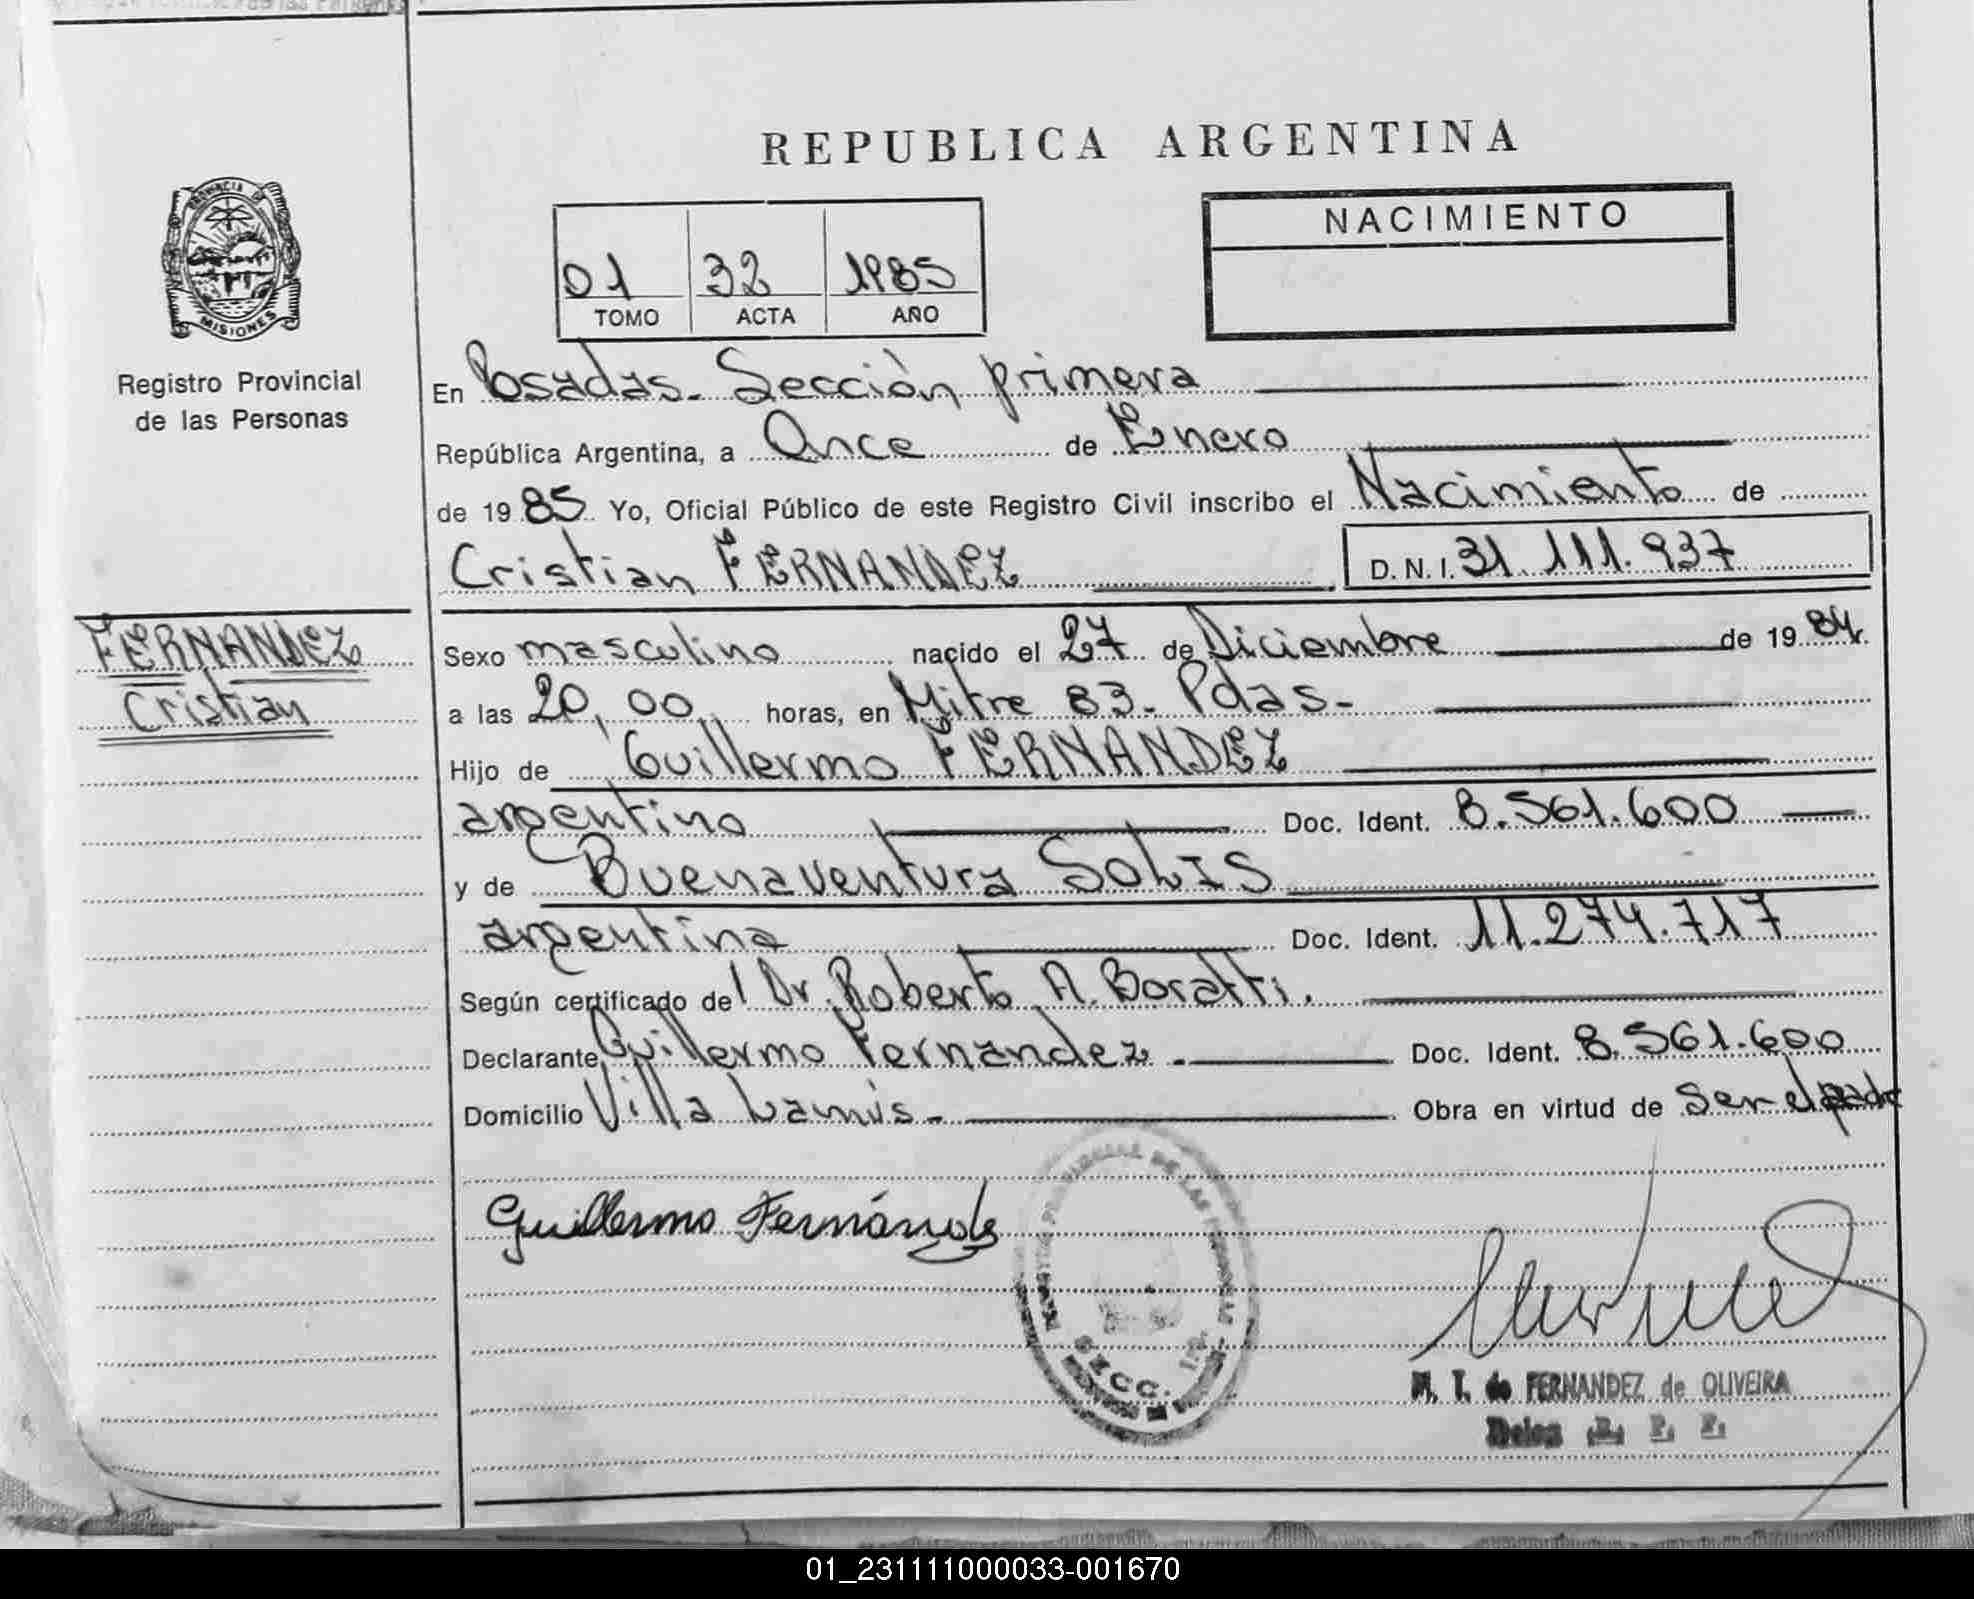 REPUBLICA ARGENTINA
PROVINCIA DE
MISIONES
Registro Provincial
de las Personas
NACIMIENTO
01 32 1985
TOMO ACTA AÑO
En Posadas. Sección primera
República Argentina, a Once de Enero
de 1985 Yo, Oficial Público de este Registro Civil inscribo el Nacimiento de
Cristian FERNANDEZ D.N.I. 31.111.937
FERNANDEZ
Cristian
Sexo masculino nacido el 27 de Diciembre de 1984.
a las 20,00 horas, en Mitre 83. Pdas.
Hijo de Guillermo FERNANDEZ
argentino Doc. Ident. 8.561.600
y de Buenaventura SOLIS
argentina Doc. Ident. 11.274.717
Según certificado del Dr. Roberto A. Boratti.
Declarante Guillermo Fernandez. Doc. Ident. 8.561.600
Domicilio Villa Lanús. Obra en virtud de ser el padre
Guillermo Fernández
PROVINCIAL DE LAS PERSONAS
SECC. 1ra
M. T. de FERNANDEZ de OLIVEIRA
Deleg. R. P. P.
01_231111000033-001670